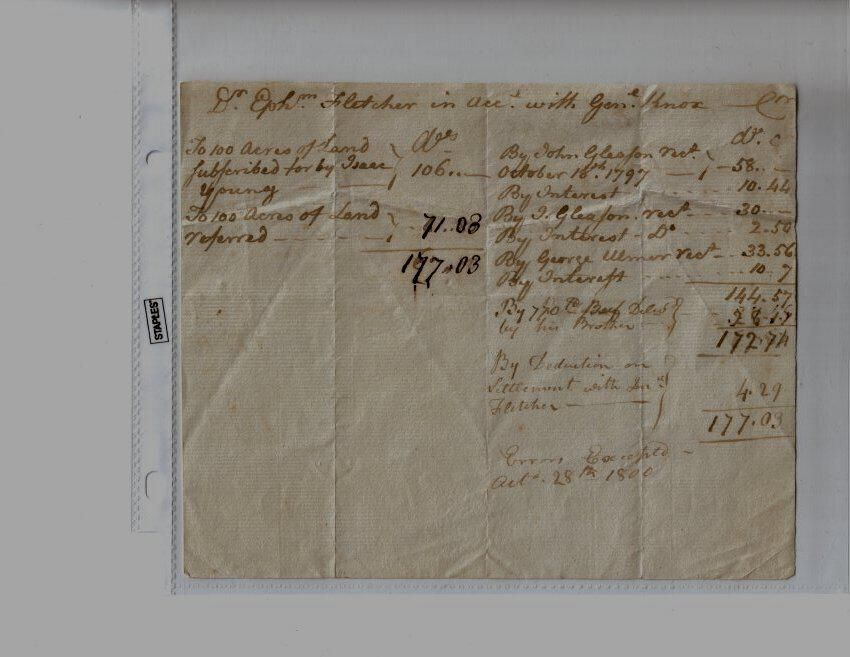 Dr. Ephm Fletcher in Acct with Genl Knox Cr
Drs
To 100 Acres of Land
Subscribed for by Isaac 106..
Young
To 100 Acres of Land
referred 71..03
177.03
dr. c
By John Gleason rect.
October 18th. 1797 58..
By Interest 10.44
By J. Gleason rect 30..
By Interest Do 2.50
By George Ulmer rect 33.56
By Interest 10.7
144.57
By 770 lb Beef
by his Brother
172.74
By Deduction on
Settlement with Jno.
Fletcher 4.29
177.03
Errors Excepted
Octr. 28th 1800
STAPLES